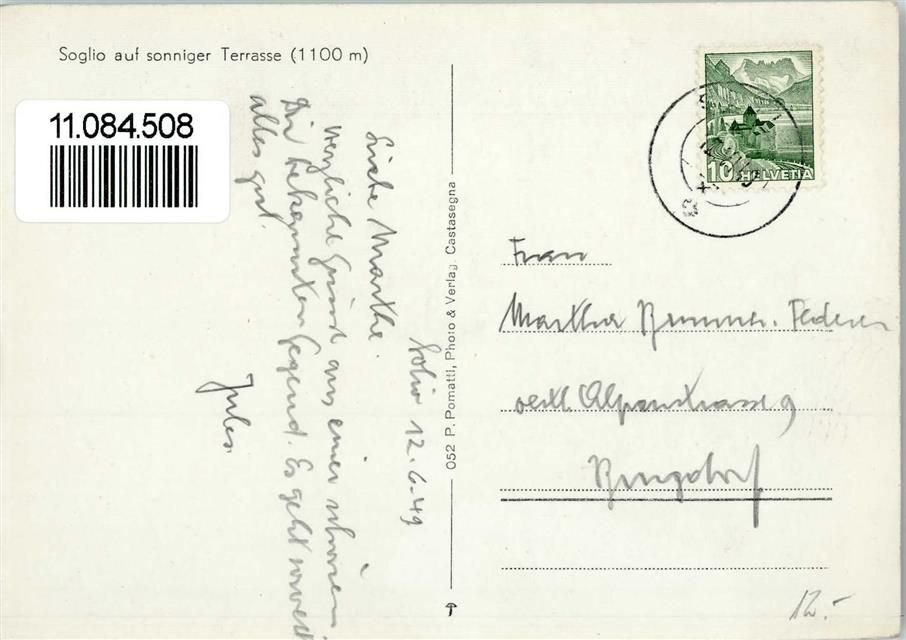 Soglio auf sonniger Terrasse (1100 m)
11.084.508
Solio 12.6.49
Liebe Marthe.
Herzliche Grüsse aus einer schönen
Dir bekannten Gegend. Es geht soweit
alles gut.
Jules.
052 P. Pomatti, Photo & Verlag, Castasegna
10 HELVETIA
Frau
Martha Brunner. Federer
oestl. Alpenstrasse 9
Burgdorf
12.-